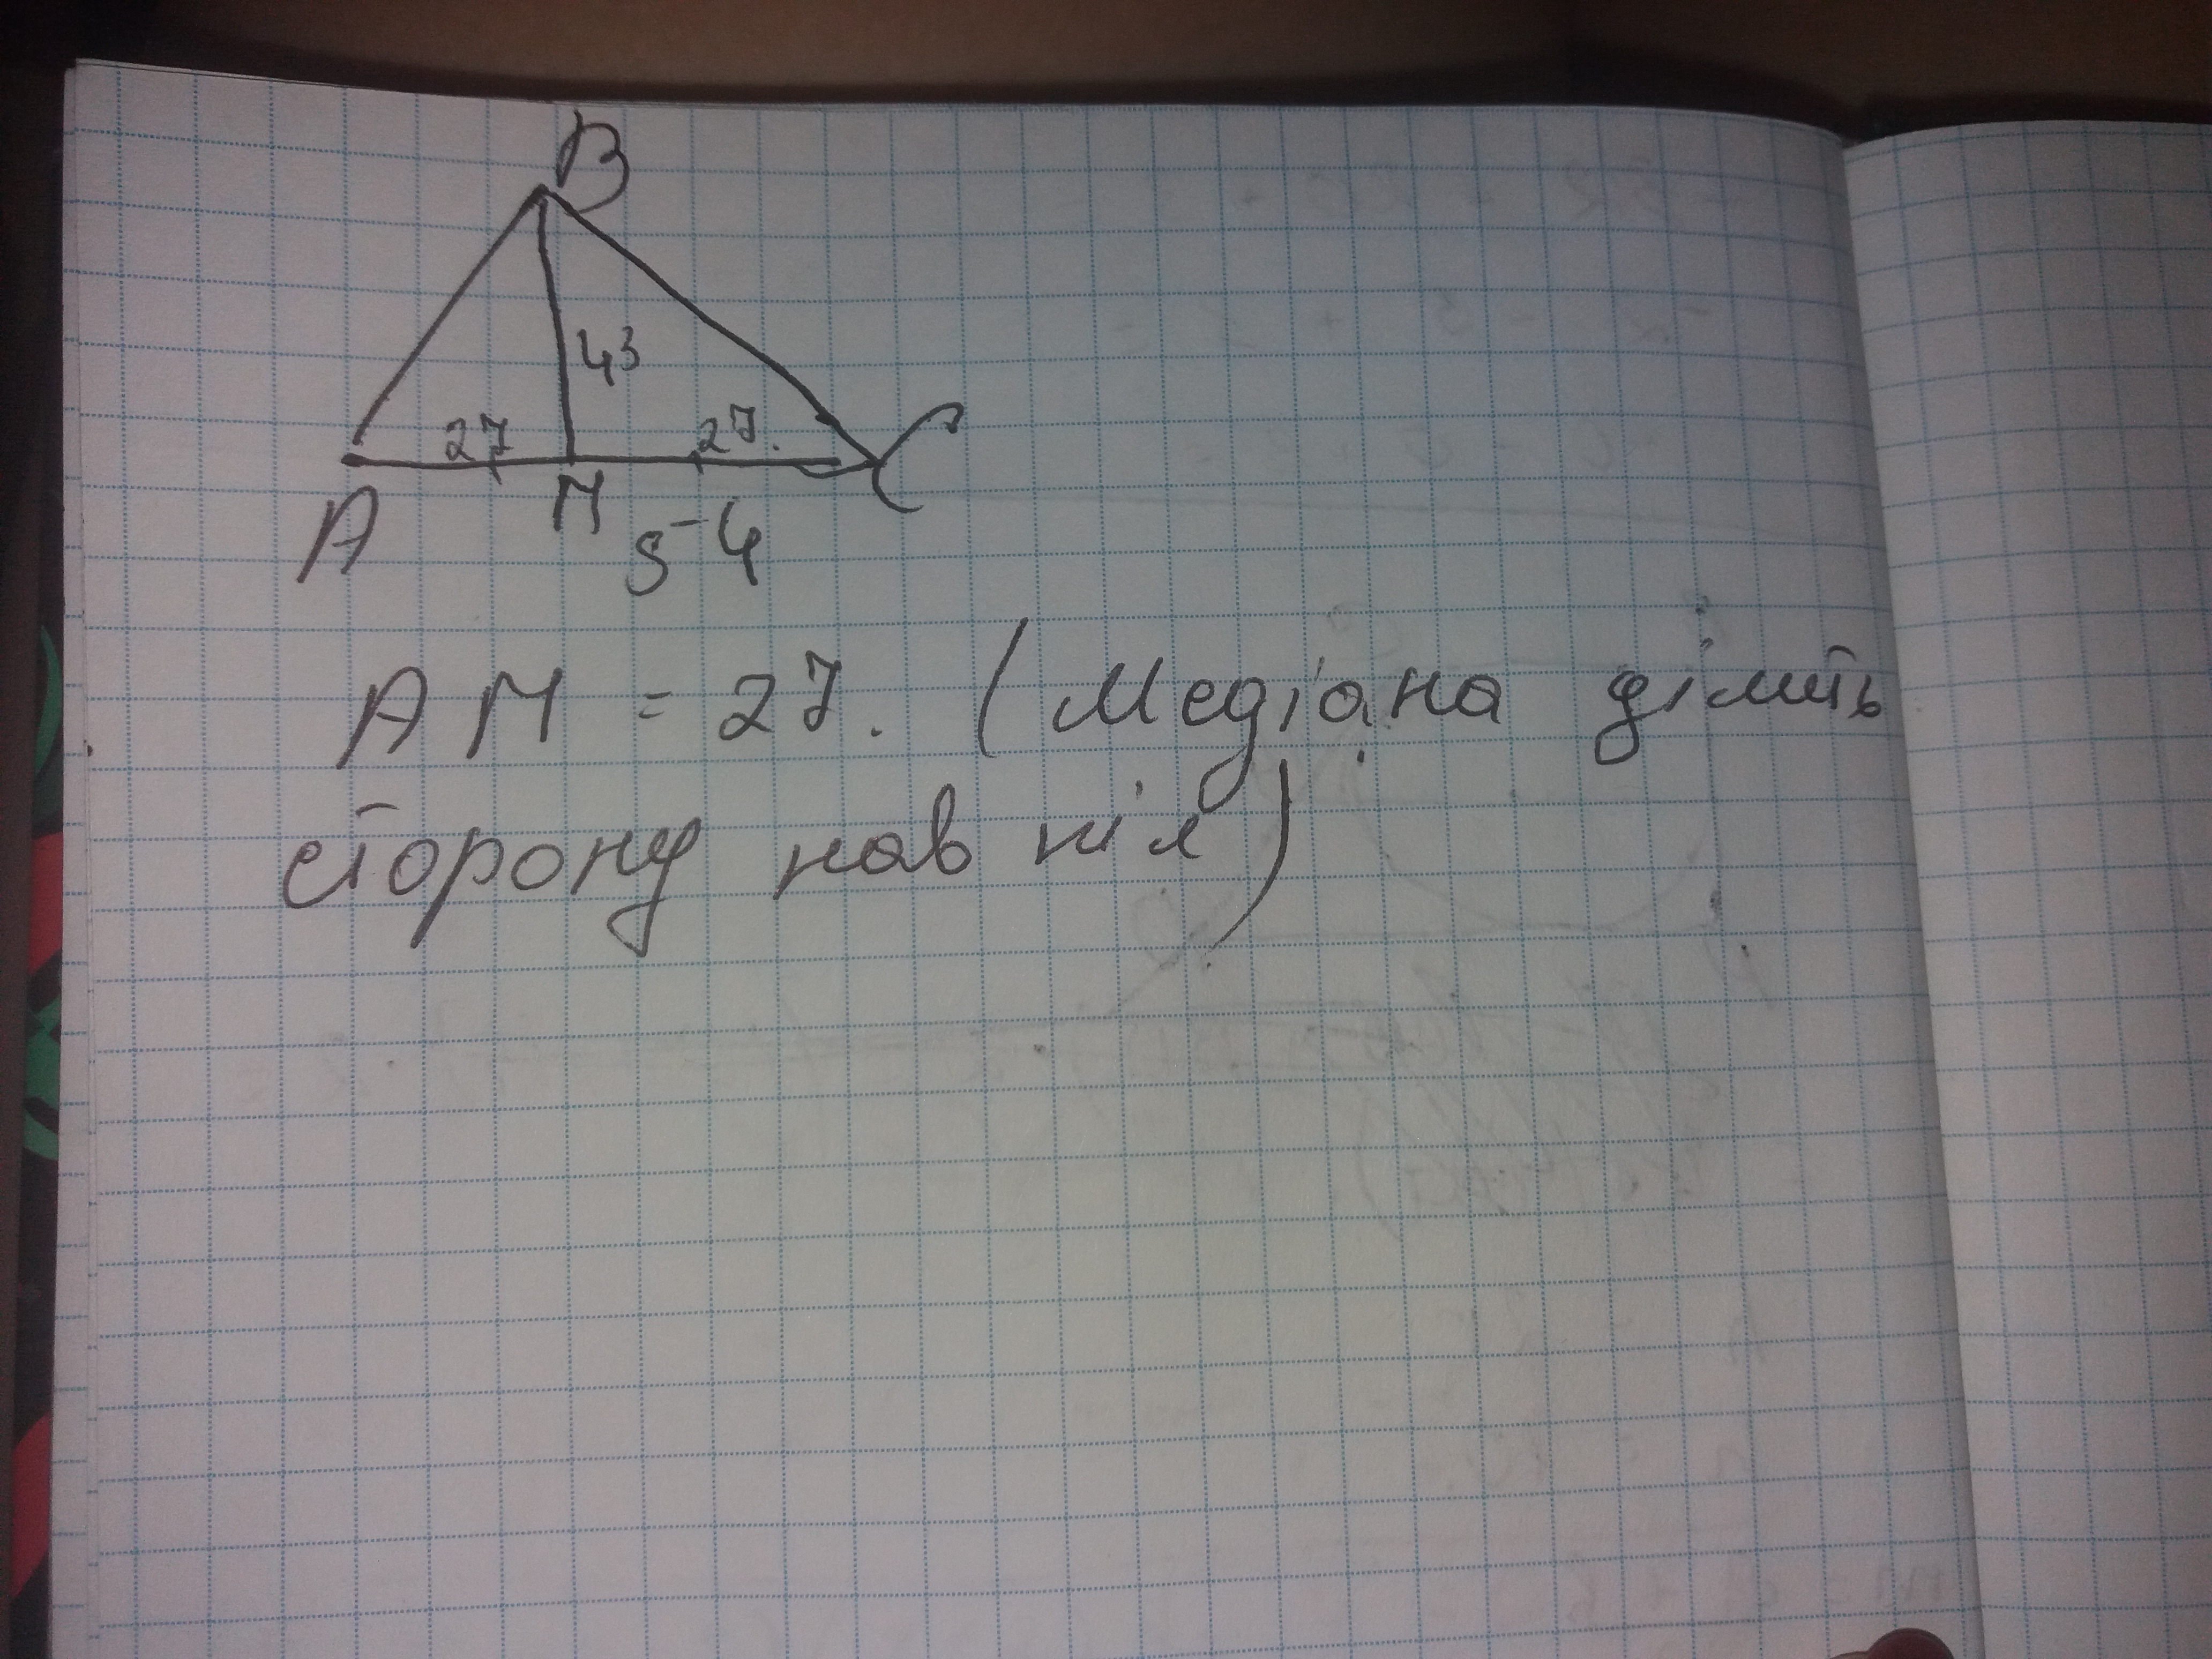 В
43
27 27.
А М С
54
АМ = 27. (Медіана ділить
сторону нав піл)